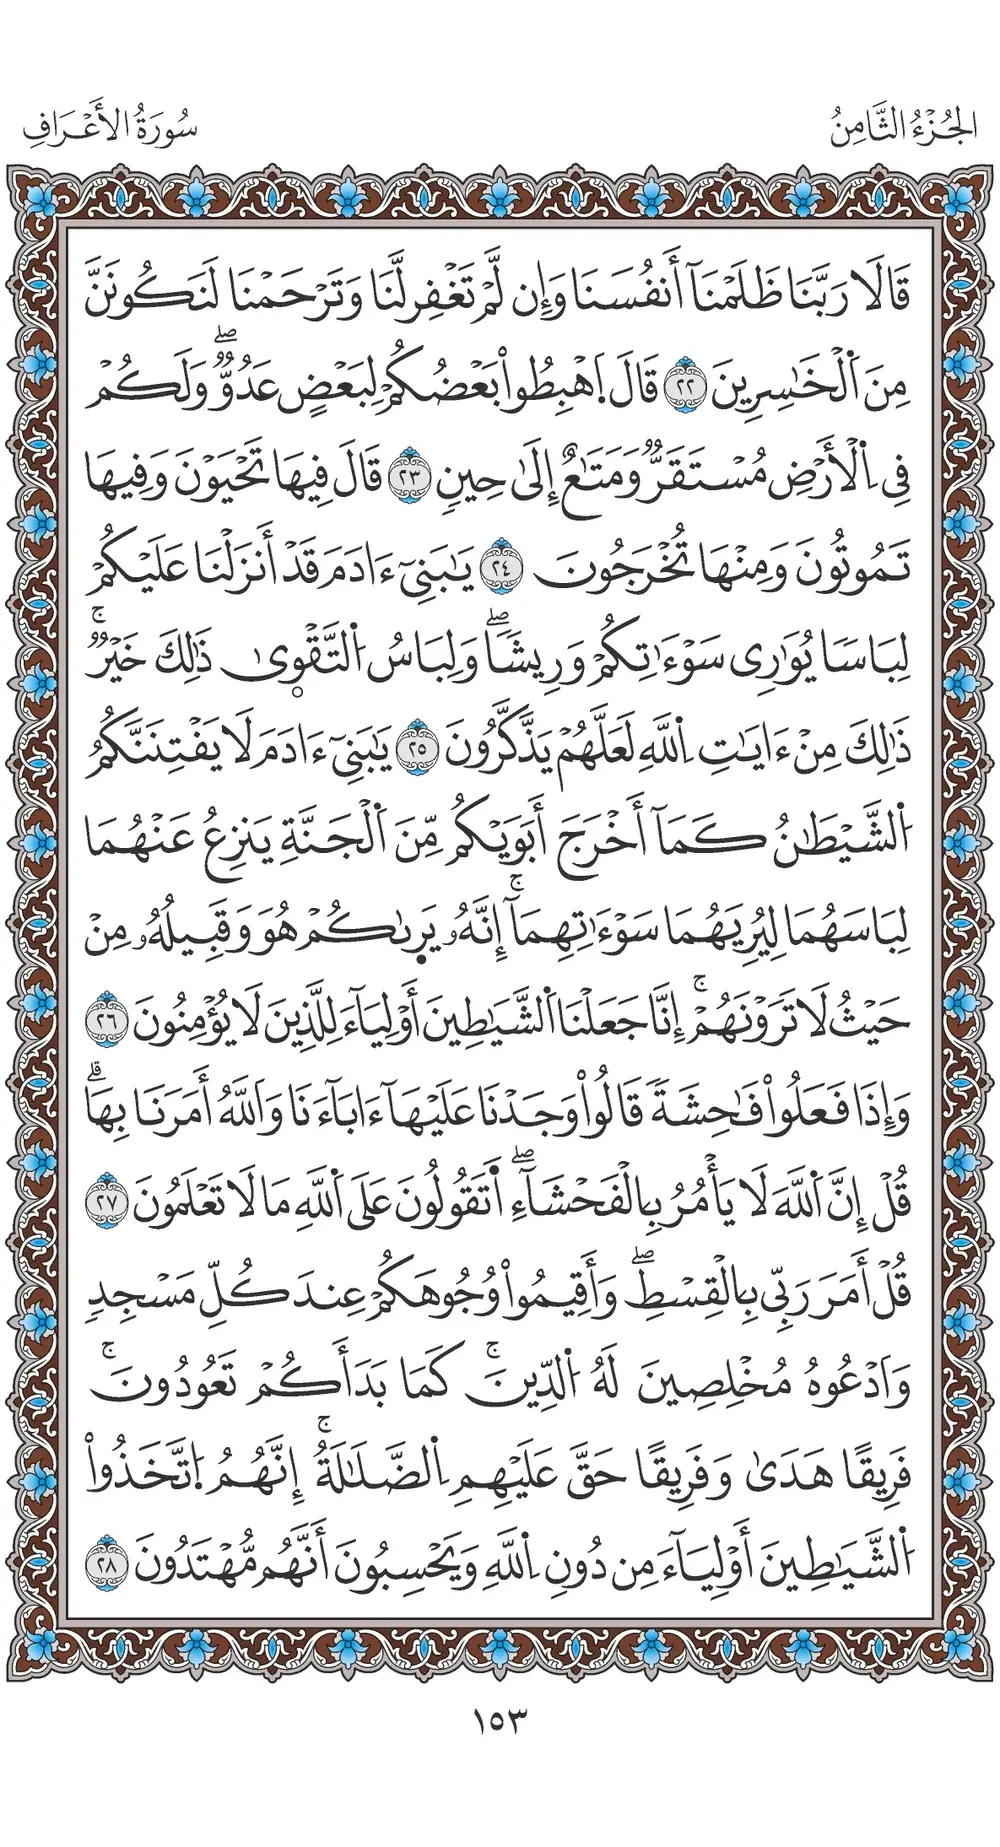 الجُزْءُ الثَّامِنُ
سُورَةُ الأَعْرَافِ
قَالَا رَبَّنَا ظَلَمْنَآ أَنفُسَنَا وَإِن لَّمْ تَغْفِرْ لَنَا وَتَرْحَمْنَا لَنَكُونَنَّ
مِنَ اَ۬لْخَٰسِرِينَ ٢٢ قَالَ اَ۪هْبِطُواْ بَعْضُكُمْ لِبَعْضٍ عَدُوࣱّۖ وَلَكُمْ
فِي اِ۬لْأَرْضِ مُسْتَقَرࣱّ وَمَتَٰعٌ إِلَىٰ حِينࣲ ٢٣ قَالَ فِيهَا تَحْيَوْنَ وَفِيهَا
تَمُوتُونَ وَمِنْهَا تُخْرَجُونَ ٢٤ يَٰبَنِيٓ ءَادَمَ قَدْ أَنزَلْنَا عَلَيْكُمْ
لِبَاسࣰا يُوَٰرِي سَوْءَٰتِكُمْ وَرِيشࣰاۖ وَلِبَاسُ اُ۬لتَّقْو۪ىٰ ذَٰلِكَ خَيْرࣱۚ
ذَٰلِكَ مِنْ ءَايَٰتِ اِ۬للَّهِ لَعَلَّهُمْ يَذَّكَّرُونَ ٢٥ يَٰبَنِيٓ ءَادَمَ لَا يَفْتِنَنَّكُمُ
اُ۬لشَّيْطَٰنُ كَمَآ أَخْرَجَ أَبَوَيْكُم مِّنَ اَ۬لْجَنَّةِ يَنزِعُ عَنْهُمَا
لِبَاسَهُمَا لِيُرِيَهُمَا سَوْءَٰتِهِمَآۚ إِنَّهُۥ يَر۪ىٰكُمْ هُوَ وَقَبِيلُهُۥ مِنْ
حَيْثُ لَا تَرَوْنَهُمْۚ إِنَّا جَعَلْنَا اَ۬لشَّيَٰطِينَ أَوْلِيَآءَ لِلَّذِينَ لَا يُؤْمِنُونَ ٢٦
وَإِذَا فَعَلُواْ فَٰحِشَةࣰ قَالُواْ وَجَدْنَا عَلَيْهَآ ءَابَآءَنَا وَاَللَّهُ أَمَرَنَا بِهَاۗ
قُلْ إِنَّ اَ۬للَّهَ لَا يَأْمُرُ بِالْفَحْشَآءِۖ اَ۬تَقُولُونَ عَلَى اَ۬للَّهِ مَا لَا تَعْلَمُونَ ٢٧
قُلْ أَمَرَ رَبِّي بِالْقِسْطِۖ وَأَقِيمُواْ وُجُوهَكُمْ عِندَ كُلِّ مَسْجِدࣲ
وَاَدْعُوهُ مُخْلِصِينَ لَهُ اُ۬لدِّينَۚ كَمَا بَدَأَكُمْ تَعُودُونَۚ
فَرِيقًا هَدَىٰ وَفَرِيقًا حَقَّ عَلَيْهِمِ اِ۬لضَّلَٰلَةُۚ إِنَّهُمُ اُ۪تَّخَذُواْ
اُ۬لشَّيَٰطِينَ أَوْلِيَآءَ مِن دُونِ اِ۬للَّهِ وَيَحْسِبُونَ أَنَّهُم مُّهْتَدُونَ ٢٨
١٥٣